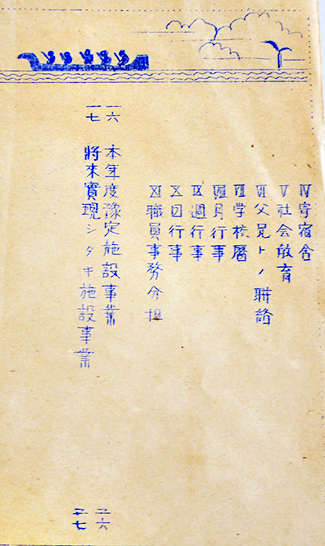 Ⅳ寄宿舎
Ⅴ社会敎育
Ⅵ父兄トノ聯絡
Ⅶ学校暦
Ⅷ月行事
Ⅸ週行事
Ⅹ日行事
Ⅺ職員事務分担
一六 本年度豫定施設事業 二六
一七 將來實現シタキ施設事業 二七